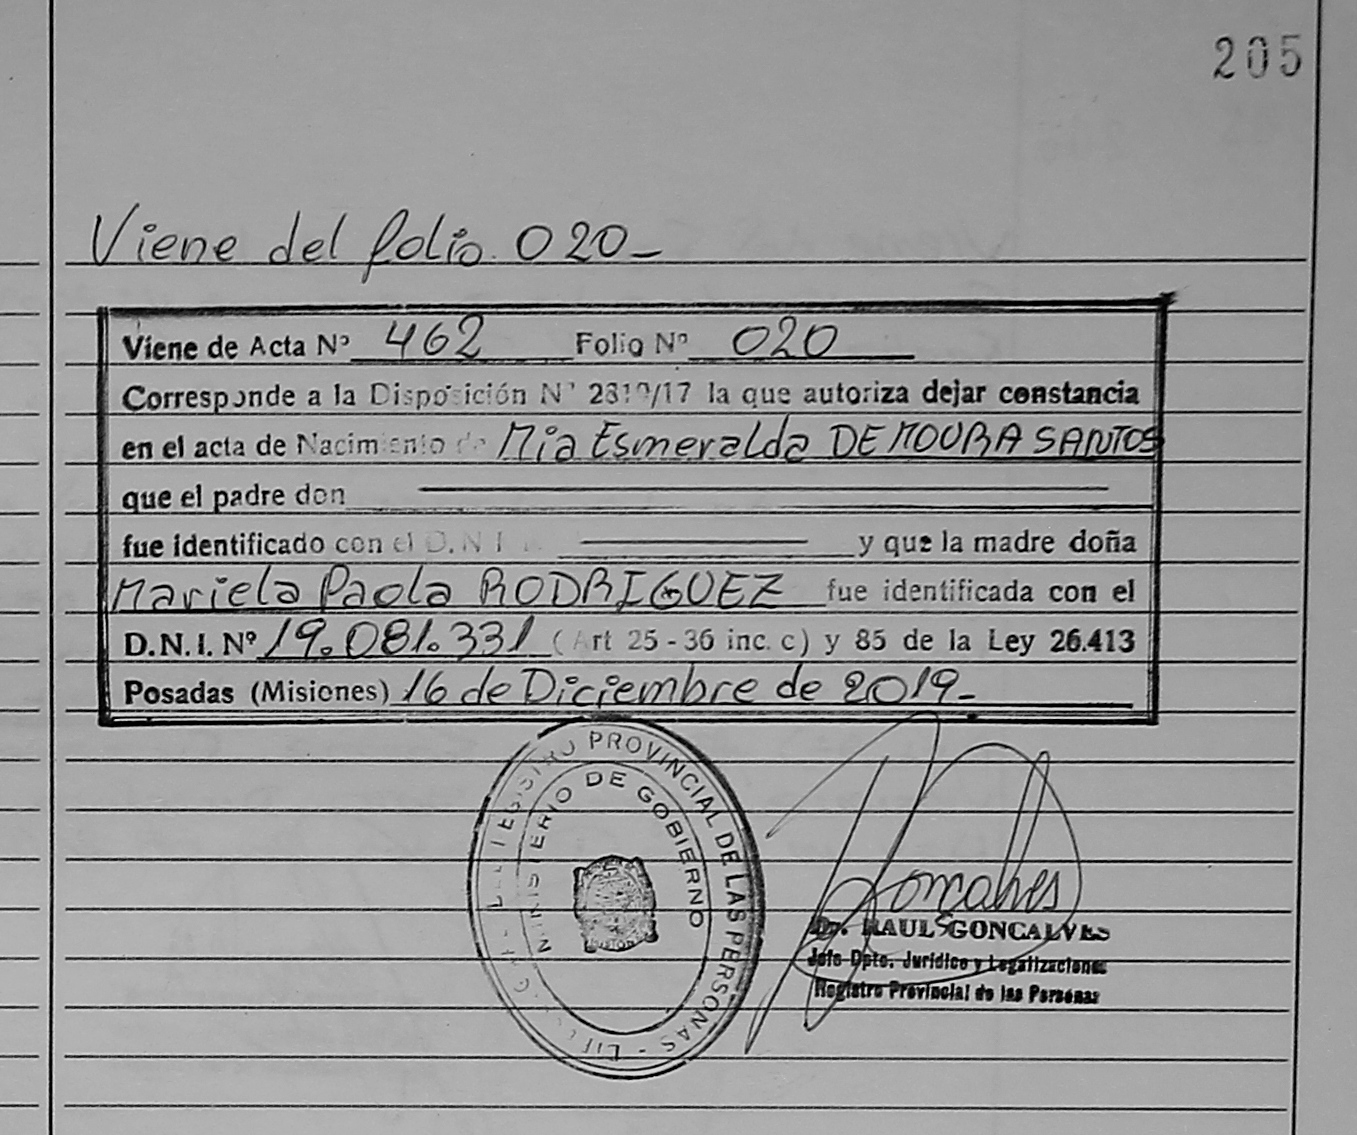 205
Viene del folio. 020-
Viene de Acta Nº 462 Folio Nº 020
Corresponde a la Disposición Nº 2819/17 la que autoriza dejar constancia
en el acta de Nacimiento de Mia Esmeralda DE MOURA SANTOS
que el padre don
fue identificado con el D.N.I. y que la madre doña
Mariela Paola RODRIGUEZ fue identificada con el
D.N.I. Nº 19.081.331 (Art 25-36 inc. c) y 85 de la Ley 26.413
Posadas (Misiones) 16 de Diciembre de 2019-
REGISTRO PROVINCIAL DE LAS PERSONAS -
MINISTERIO DE GOBIERNO
Goncalves
Dr. RAUL GONCALVES
Jefe Dpto. Jurídico y Legalizaciones
Registro Provincial de las Personas